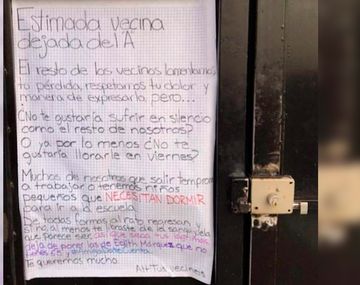 Estimada vecina
dejada del A
El resto de los vecinos lamentamos
tu pérdida, respetamos tu dolor y
manera de expresarlo, pero...
¿No te gustaría sufrir en silencio
como el resto de nosotros?
O ya por lo menos ¿No te
gustaría llorarle en viernes?
Muchos de nosotros que salir temprano
a trabajar o tenemos niños
pequeños que NECESITAN DORMIR
para ir a la escuela
De todas formas al rato regresan y
si no, al menos te
que parece ser así que seca tus lágrimas
deja de poner las de Edith Márquez que no
Te queremos mucho
Att Tus vecinos